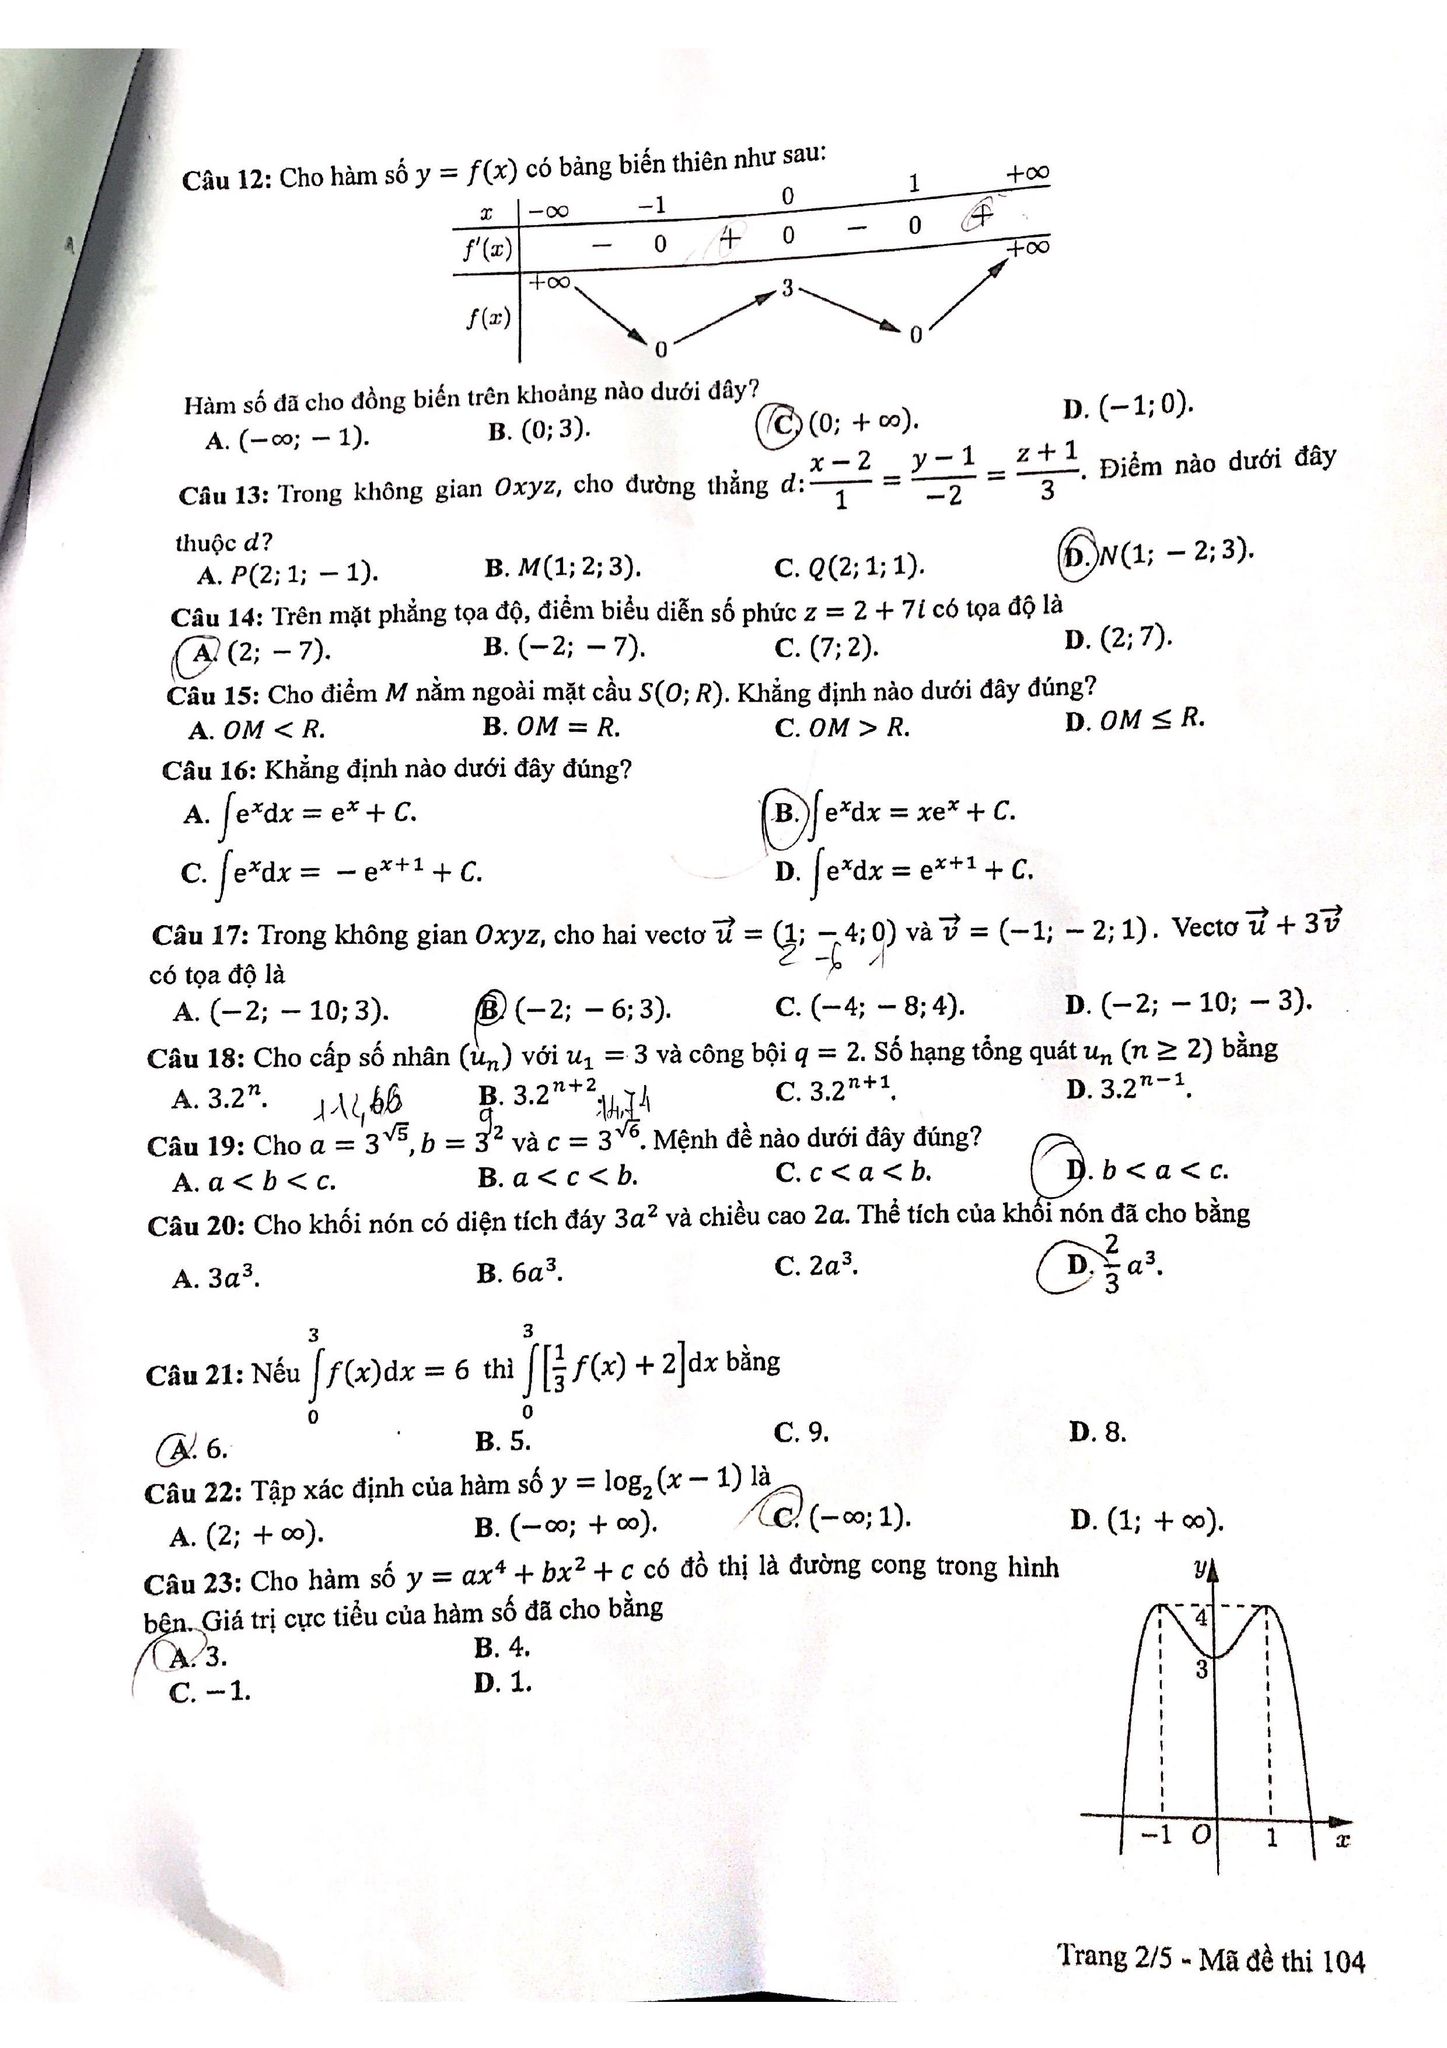 Câu 12: Cho hàm số y = f(x) có bảng biến thiên như sau:
x −∞ −1 0 1 +∞
f'(x) − 0 + 0 − 0 +
f(x) +∞ 0 3 0 +∞
Hàm số đã cho đồng biến trên khoảng nào dưới đây?
A. (−∞; − 1). B. (0; 3). C. (0; + ∞). D. (−1; 0).
Câu 13: Trong không gian Oxyz, cho đường thẳng d: (x − 2)/1 = (y − 1)/−2 = (z + 1)/3. Điểm nào dưới đây
thuộc d?
A. P(2; 1; − 1). B. M(1; 2; 3). C. Q(2; 1; 1). D. N(1; − 2; 3).
Câu 14: Trên mặt phẳng tọa độ, điểm biểu diễn số phức z = 2 + 7i có tọa độ là
A. (2; − 7). B. (−2; − 7). C. (7; 2). D. (2; 7).
Câu 15: Cho điểm M nằm ngoài mặt cầu S(O; R). Khẳng định nào dưới đây đúng?
A. OM < R. B. OM = R. C. OM > R. D. OM ≤ R.
Câu 16: Khẳng định nào dưới đây đúng?
A. ∫eˣdx = eˣ + C. B. ∫eˣdx = xeˣ + C.
C. ∫eˣdx = − eˣ⁺¹ + C. D. ∫eˣdx = eˣ⁺¹ + C.
Câu 17: Trong không gian Oxyz, cho hai vectơ u⃗ = (1; − 4; 0) và v⃗ = (−1; − 2; 1). Vectơ u⃗ + 3v⃗
2 −6 1
có tọa độ là
A. (−2; − 10; 3). B. (−2; − 6; 3). C. (−4; − 8; 4). D. (−2; − 10; − 3).
Câu 18: Cho cấp số nhân (uₙ) với u₁ = 3 và công bội q = 2. Số hạng tổng quát uₙ (n ≥ 2) bằng
A. 3.2ⁿ. B. 3.2ⁿ⁺². C. 3.2ⁿ⁺¹. D. 3.2ⁿ⁻¹.
11,66 9 14,74
Câu 19: Cho a = 3^√5, b = 3² và c = 3^√6. Mệnh đề nào dưới đây đúng?
A. a < b < c. B. a < c < b. C. c < a < b. D. b < a < c.
Câu 20: Cho khối nón có diện tích đáy 3a² và chiều cao 2a. Thể tích của khối nón đã cho bằng
A. 3a³. B. 6a³. C. 2a³. D. 2/3 a³.
Câu 21: Nếu ∫₀³ f(x)dx = 6 thì ∫₀³ [1/3 f(x) + 2]dx bằng
A. 6. B. 5. C. 9. D. 8.
Câu 22: Tập xác định của hàm số y = log₂(x − 1) là
A. (2; + ∞). B. (−∞; + ∞). C. (−∞; 1). D. (1; + ∞).
Câu 23: Cho hàm số y = ax⁴ + bx² + c có đồ thị là đường cong trong hình
bên. Giá trị cực tiểu của hàm số đã cho bằng
A. 3. B. 4.
C. −1. D. 1.
y
4
3
−1 O 1 x
Trang 2/5 - Mã đề thi 104